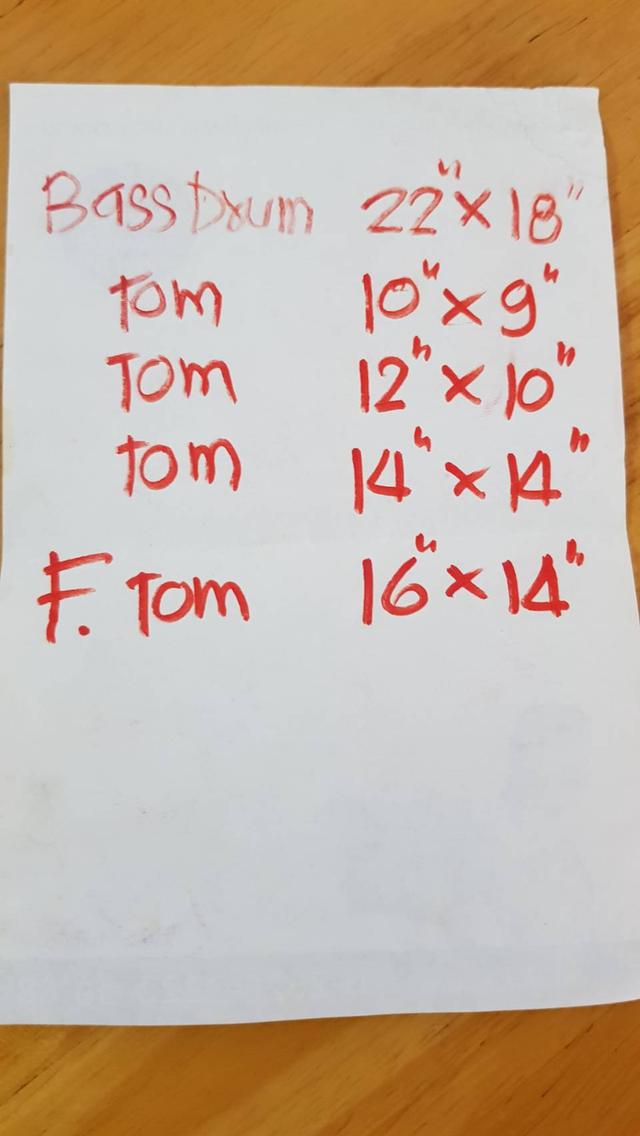 Bass Drum 22" x 18"
Tom 10" x 9"
Tom 12" x 10"
Tom 14" x 14"
F. Tom 16" x 14"